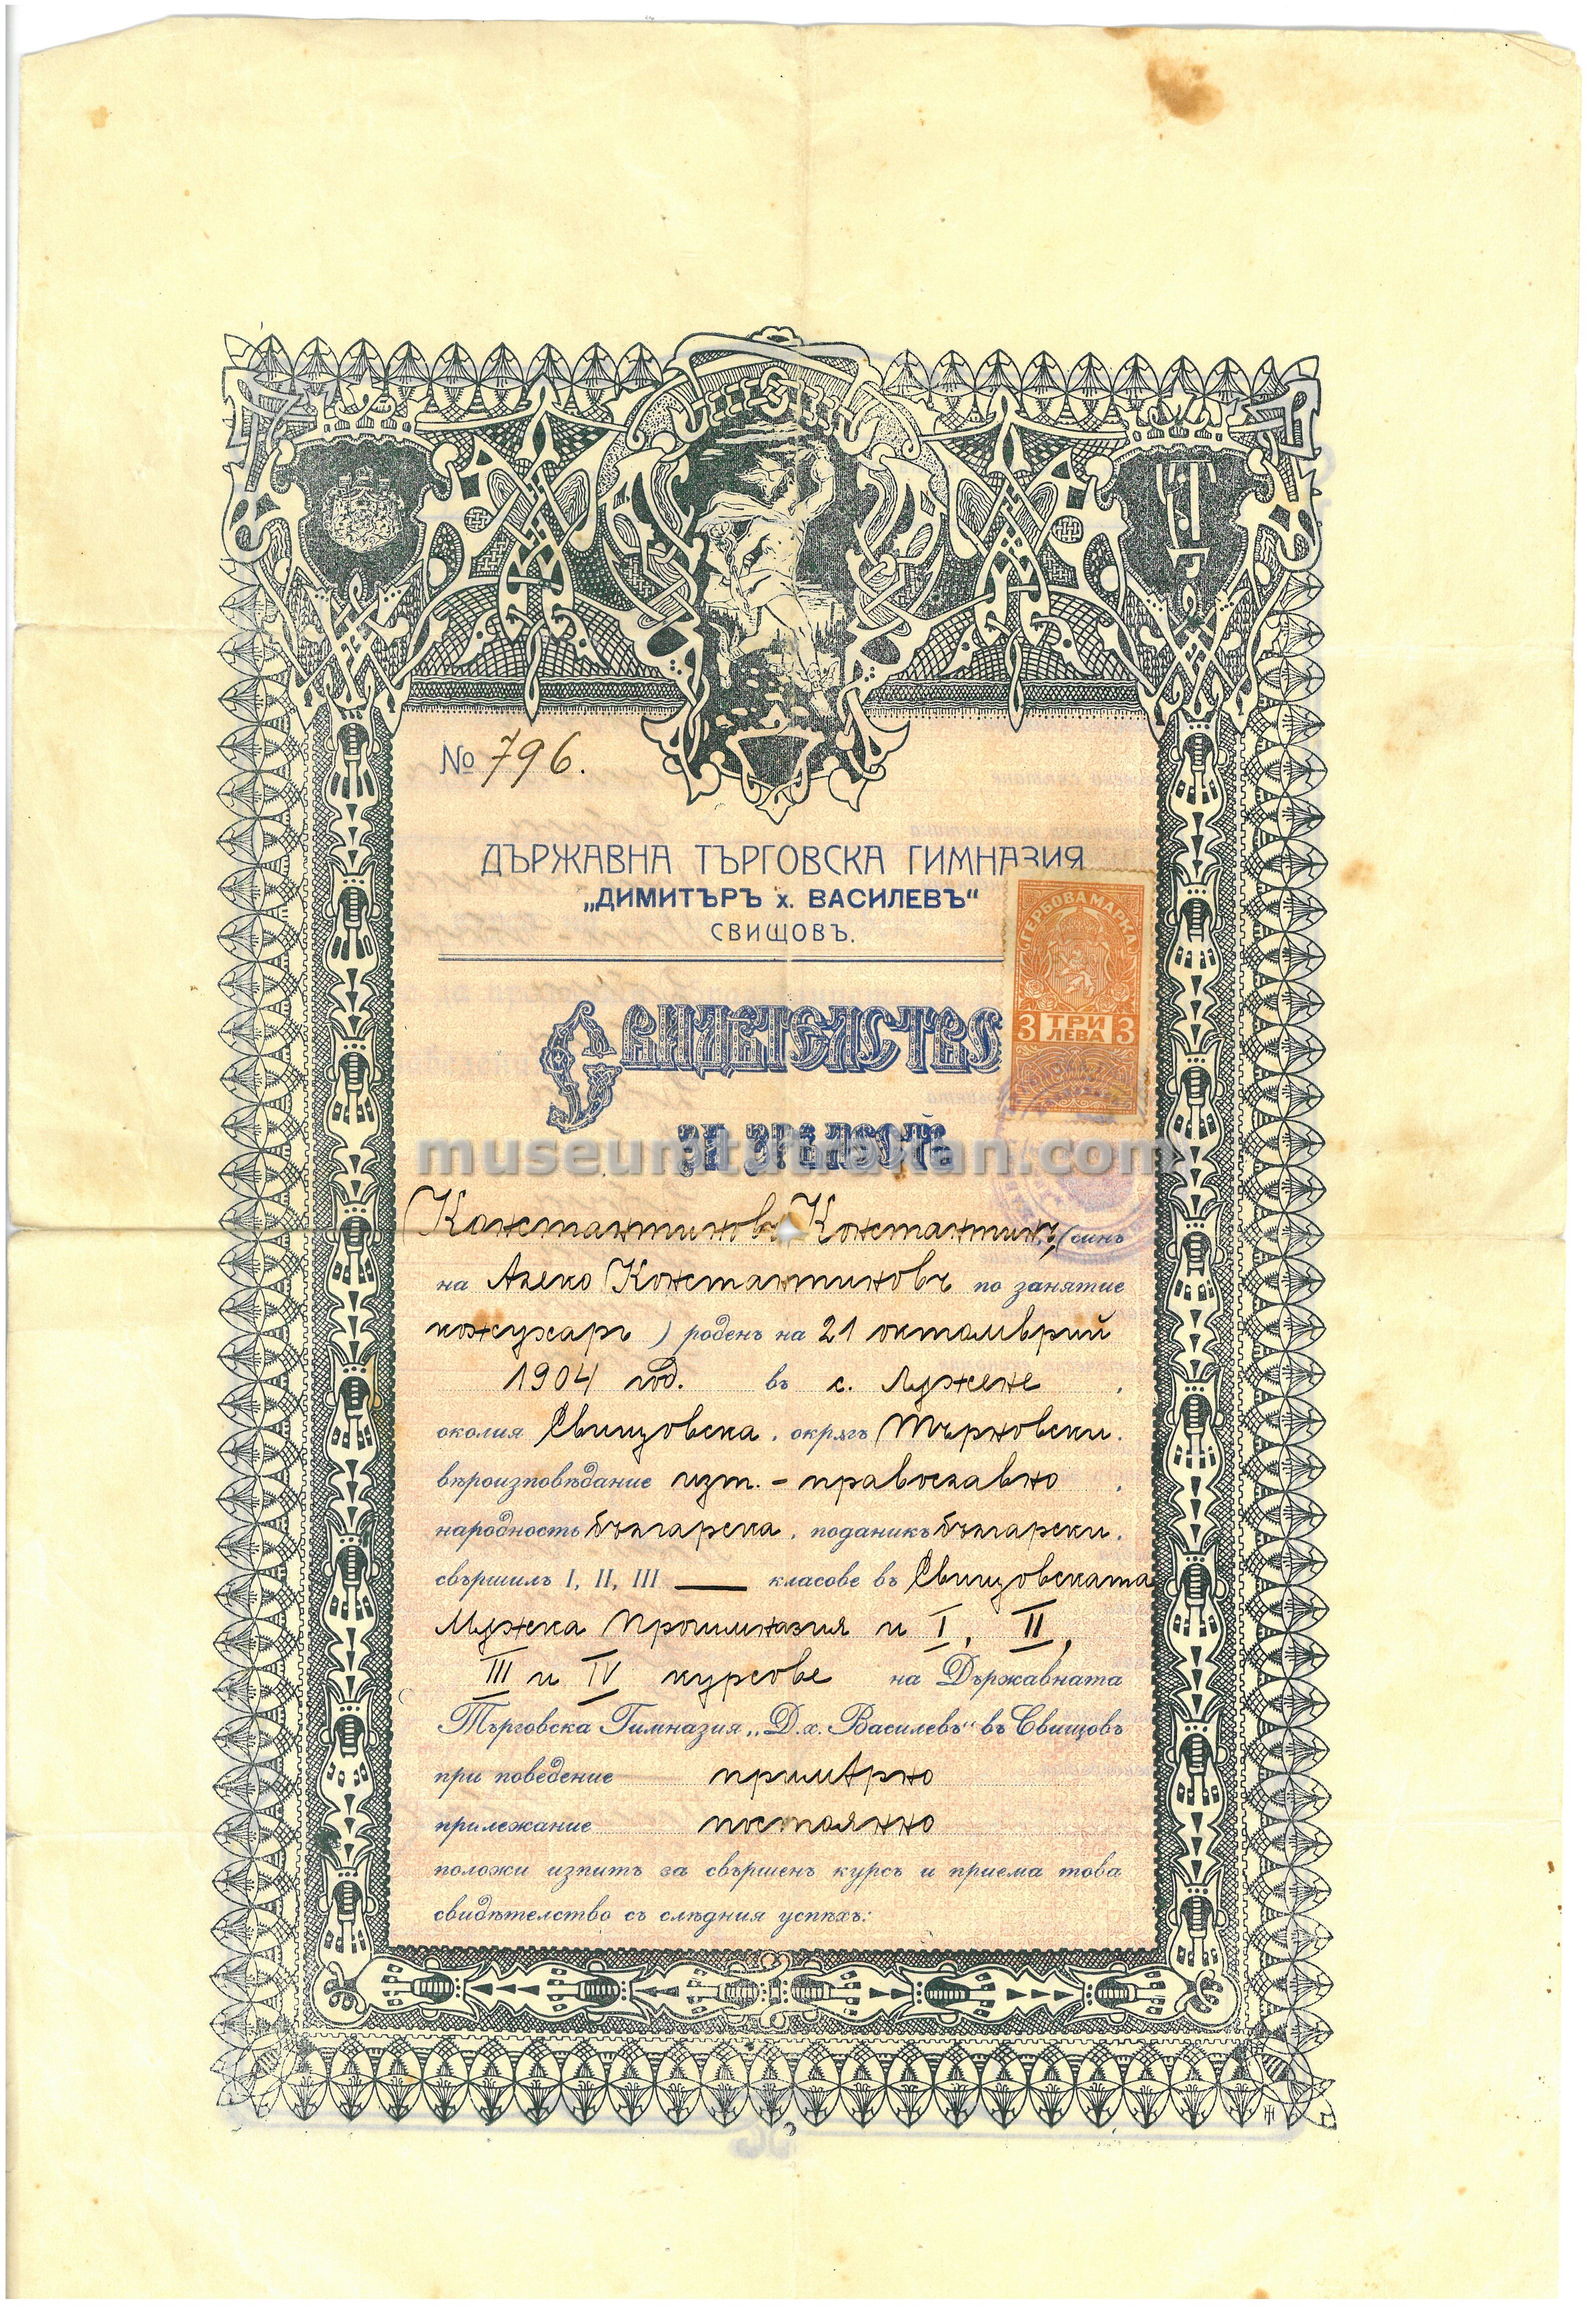 № 796.
ДЪРЖАВНА ТЪРГОВСКА ГИМНАЗИЯ
„ДИМИТЪРЪ х. ВАСИЛЕВЪ“
СВИЩОВЪ.
ГЕРБОВА МАРКА
3 ТРИ ЛЕВА 3
СВИДѢТЕЛСТВО
ЗА ЗРѢЛОСТЬ
museumtutrakan.com
Константиновъ Константинъ, (синъ
на Алеко Константиновъ по занятие
кожухаръ ) роденъ на 21 октомврий
1904 год. въ с. Лѫжене ,
околия Свищовска, окрѫгъ Търновски.
вѣроизповѣдание изт. - православно ,
народность българска, поданикъ български,
свършилъ I, II, III — класове въ Свищовската
Мѫжка Прогимназия и I, II,
III и IV курсове на Държавната
Търговска Гимназия „Д. х. Василевъ“ въ Свищовъ
при поведение примѣрно
прилежание постоянно
положи изпитъ за свършенъ курсъ и приема това
свидѣтелство съ слѣдния успѣхъ: